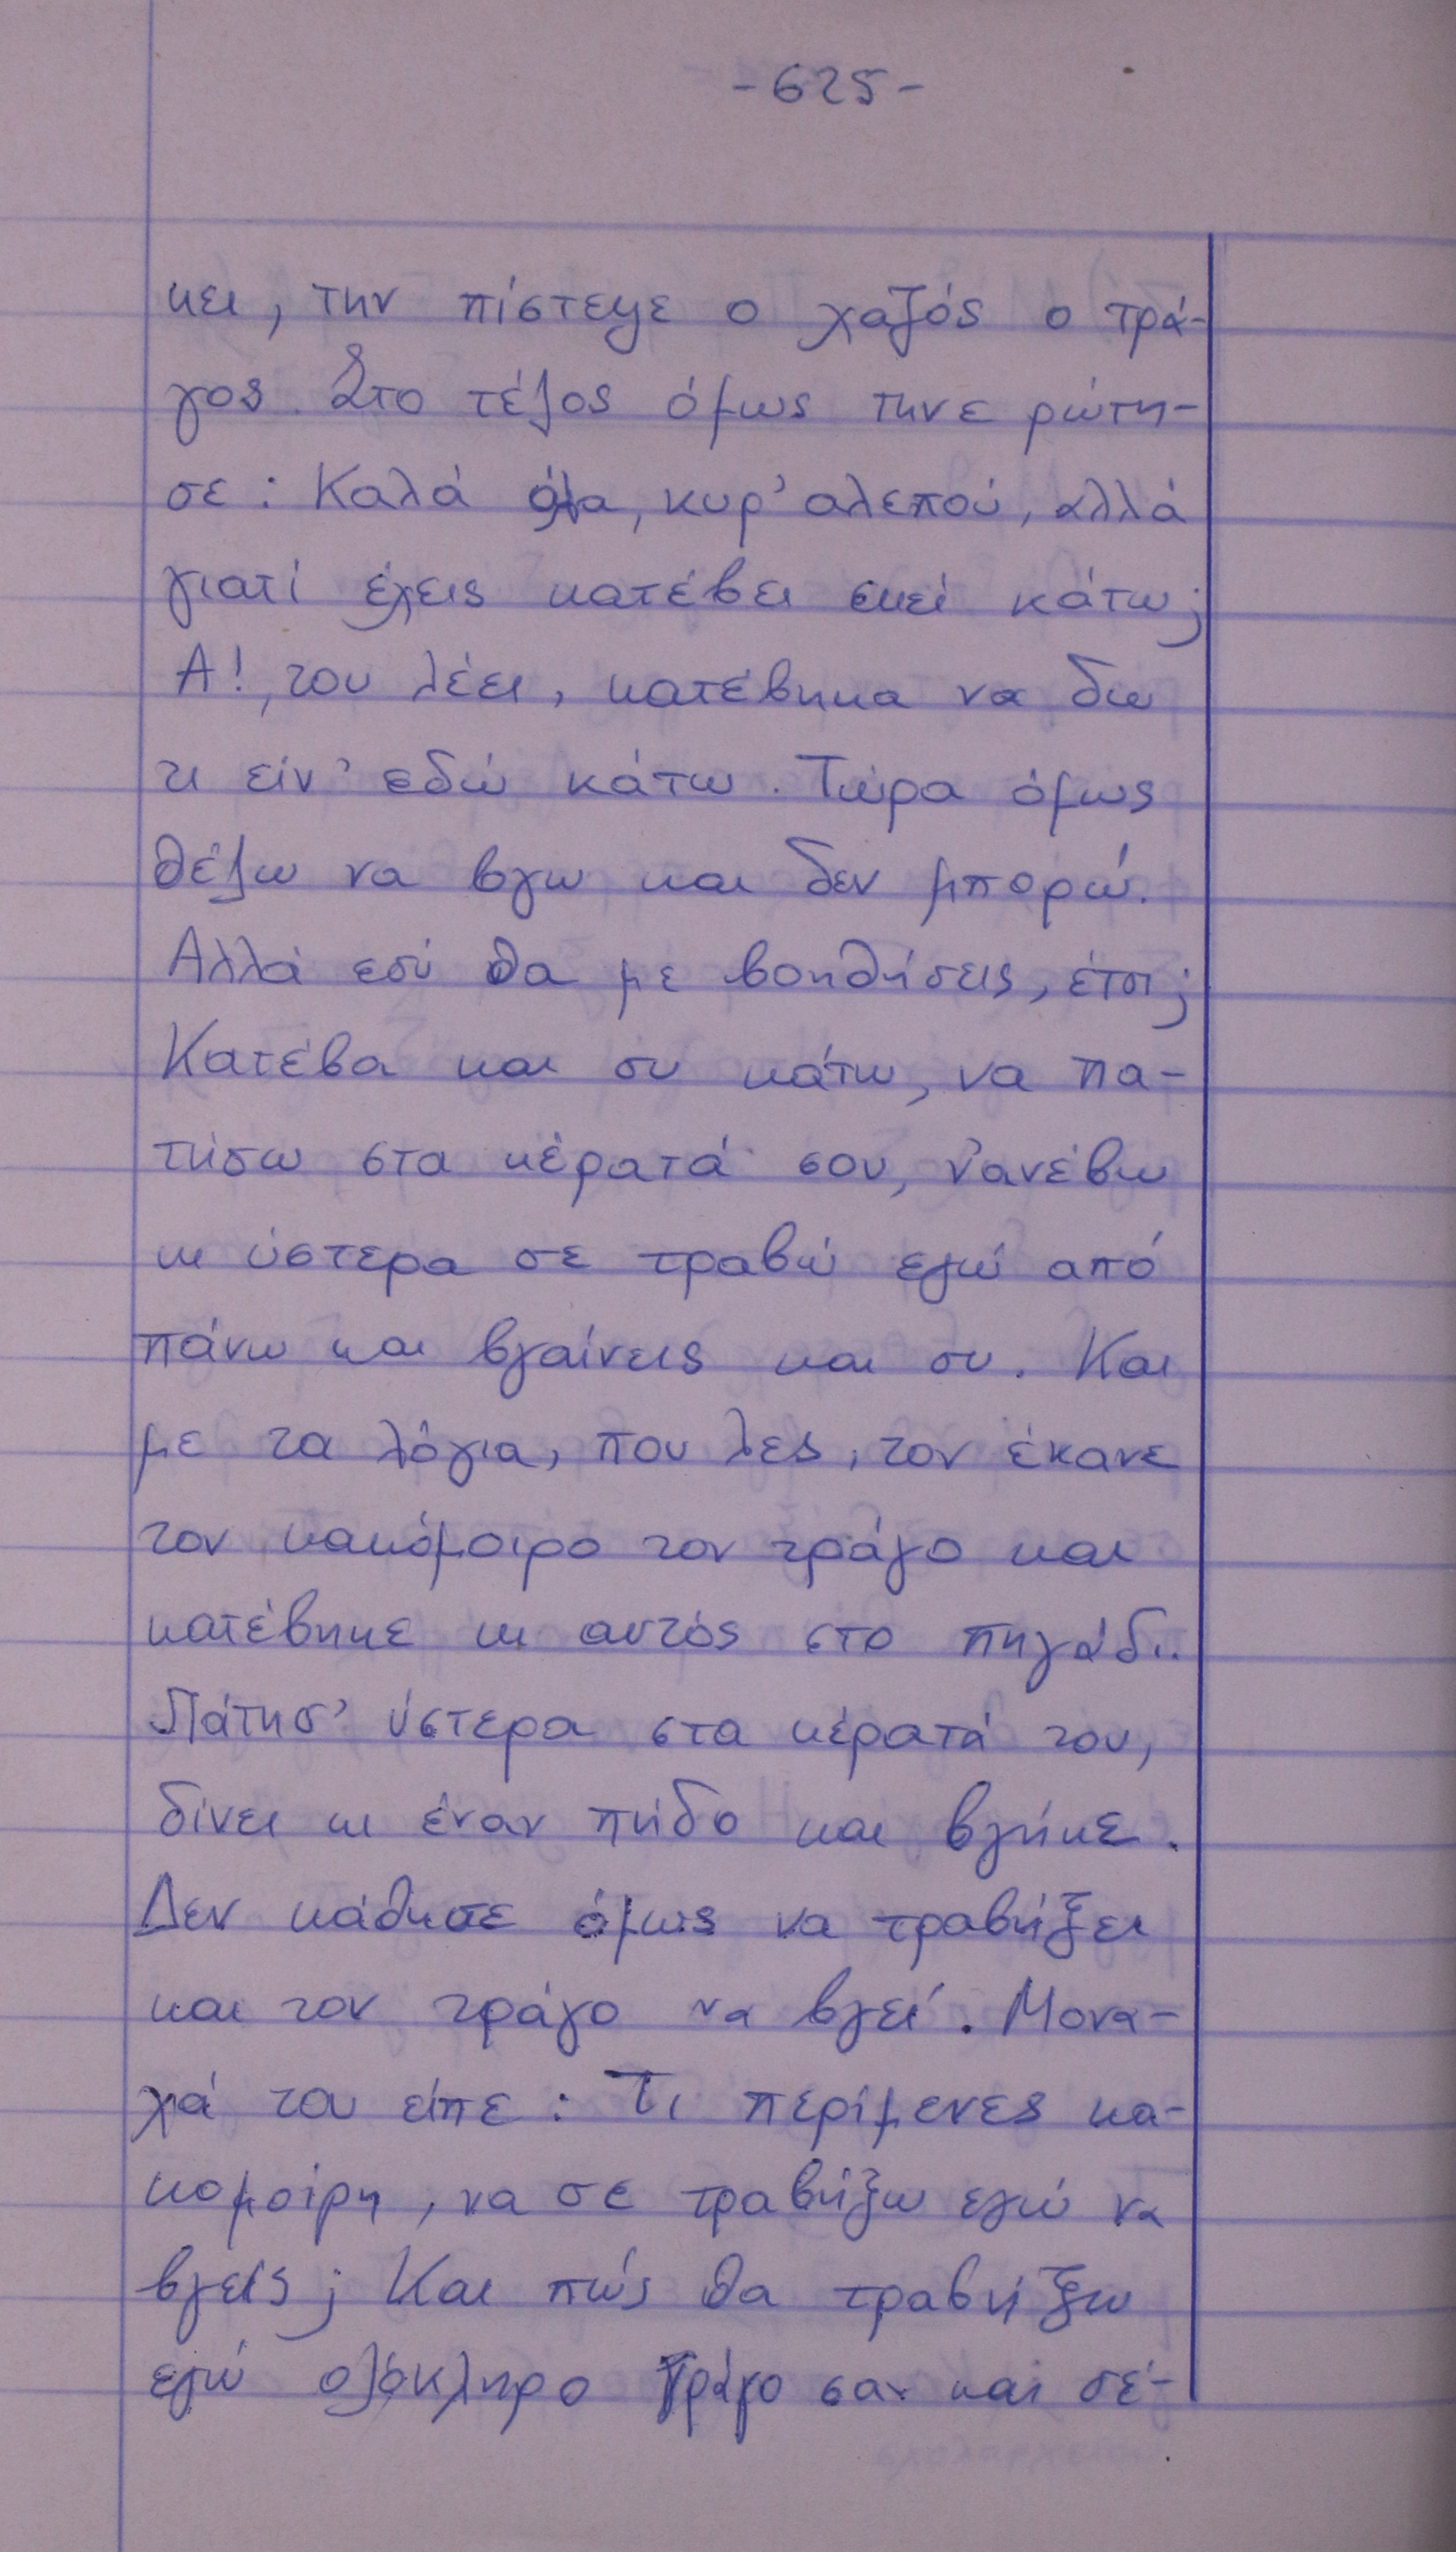 -625-
κει, την πίστεψε ο χαζός ο τρά-
γος. Στο τέλος όμως την ε ρώτη-
σε: Καλά όλα, κυρ' αλεπού, αλλά
γιατί έχεις κατέβει εκεί κάτω;
Α!, του λέει, κατέβηκα να δω
τι είν' εδώ κάτω. Τώρα όμως
θέλω να βγω και δεν μπορώ.
Αλλά εσύ θα με βοηθήσεις, έτσι;
Κατέβα και συ κάτω, να πα-
τήσω στα κέρατά σου, ν' ανέβω
κι ύστερα σε τραβώ εγώ από
πάνω και βγαίνεις και συ. Και
με τα λόγια, που λες, τον έκανε
τον κακόμοιρο τον τράγο και
κατέβηκε κι αυτός στο πηγάδι.
Πάτησ' ύστερα στα κέρατά του,
δίνει κι έναν πήδο και βγήκε.
Δεν κάθησε όμως να τραβήξει
και τον τράγο να βγει. Μονα-
χά του είπε: Τι περίμενες κα-
κομοίρη, να σε τραβήξω εγώ να
βγεις; Και πώς θα τραβήξω
εγώ ολόκληρο τράγο σαν και σέ-